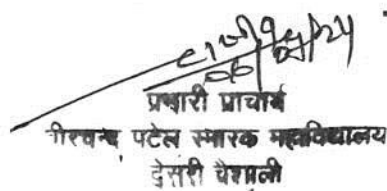 प्रभारी प्राचार्य
वीरचन्द पटेल स्मारक महाविद्यालय
देसरी वैशाली